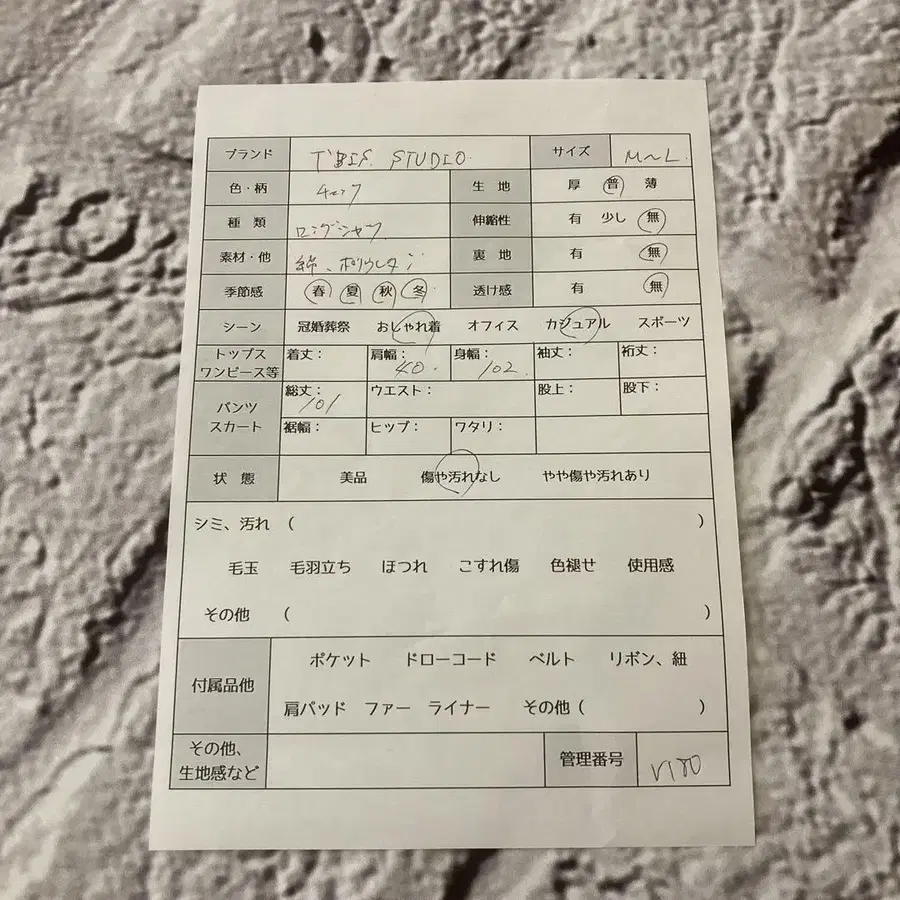 ブランド T'BIS. STUDIO. サイズ M〜L.
色・柄 生地 厚 普 薄
種類 ロングシャツ 伸縮性 有 少し 無
素材・他 綿、ポリウレタン 裏地 有 無
季節感 春 夏 秋 冬 透け感 有 無
シーン 冠婚葬祭 おしゃれ着 オフィス カジュアル スポーツ
トップス ワンピース等 着丈： 肩幅：40. 身幅：102. 袖丈： 裄丈：
パンツ スカート 総丈：101 ウエスト： 股上： 股下：
裾幅： ヒップ： ワタリ：
状態 美品 傷や汚れなし やや傷や汚れあり
シミ、汚れ （ ）
毛玉 毛羽立ち ほつれ こすれ傷 色褪せ 使用感
その他 （ ）
付属品他 ポケット ドローコード ベルト リボン、紐
肩パッド ファー ライナー その他（ ）
その他、生地感など 管理番号